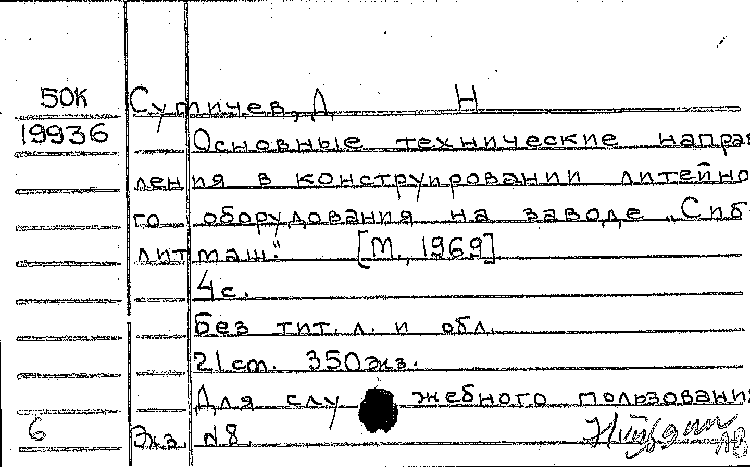 50К Сутягичев, Д Н
19936 Основные технические направ
ления в конструировании литейно
го оборудования на заводе „Сиб
литмаш." [М., 1969]
4 с.
Без тит. л. и обл.
21 cm. 350 экз.
Для служебного пользования
6 Экз. №8.